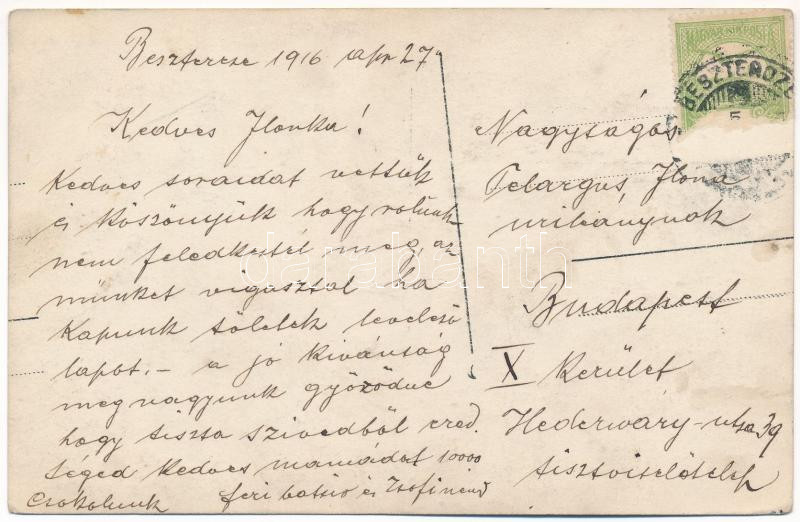 Besztercze 1916 apr 27
Kedves Ilonka!
Kedves soraidat vettük
és köszönjük hogy rolunk
nem feledkeztél meg, az
münket vigasztal ha
Kapunk töletek levelező
lapot. – a jó kivánság
meg vagyunk győződve
hogy tiszta szivedből ered.
Téged kedves mamádat 10000
Csokolunk feri batsid és Zsofi nénd
MAGYAR KIR. POSTA
BESZTERCZE
Nagyságos
Telargus Ilona
urileánynak
Budapest
X Kerület
Hederváry-utsa 39
tisztviselőtelep
darabanth